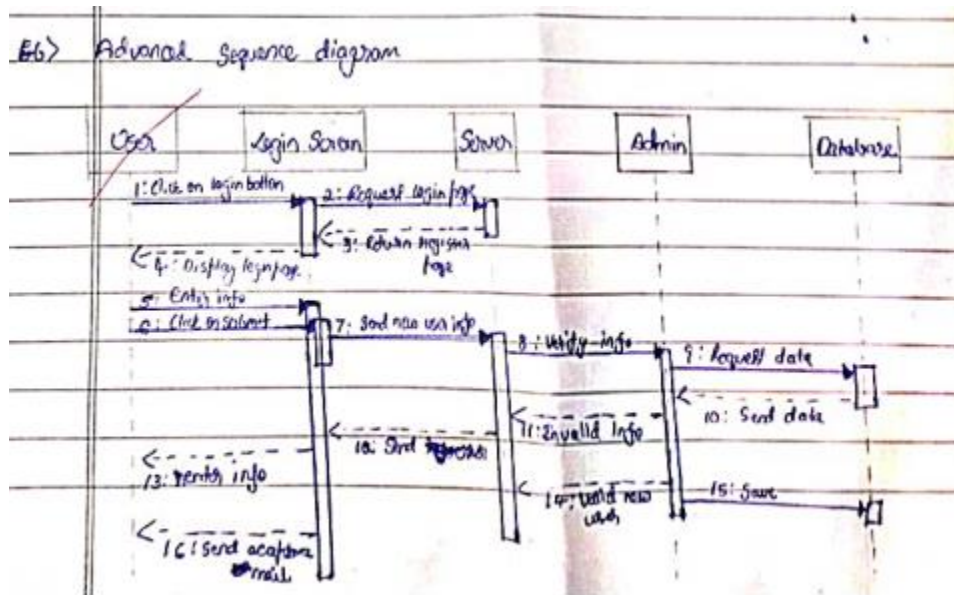 E6> Advanced Sequence diagram
User
Login Screen
Server
Admin
Database
1: Click on login button
2: Request login page
3: Return register
page
4: Display login page
5: Enter info
6: Click on submit
7: Send new user info
8: Verify info
9: Request data
10: Send data
11: Invalid Info
12: Send
13: renter info
14: Valid new
user
15: Save
16: Send
mail